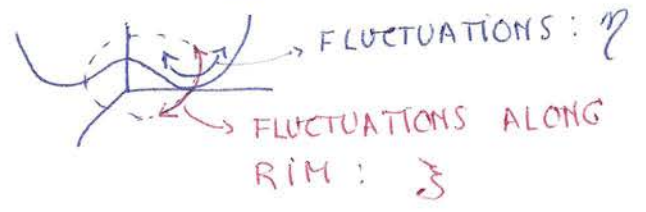 FLUCTUATIONS : η
FLUCTUATIONS ALONG
RIM : ξ